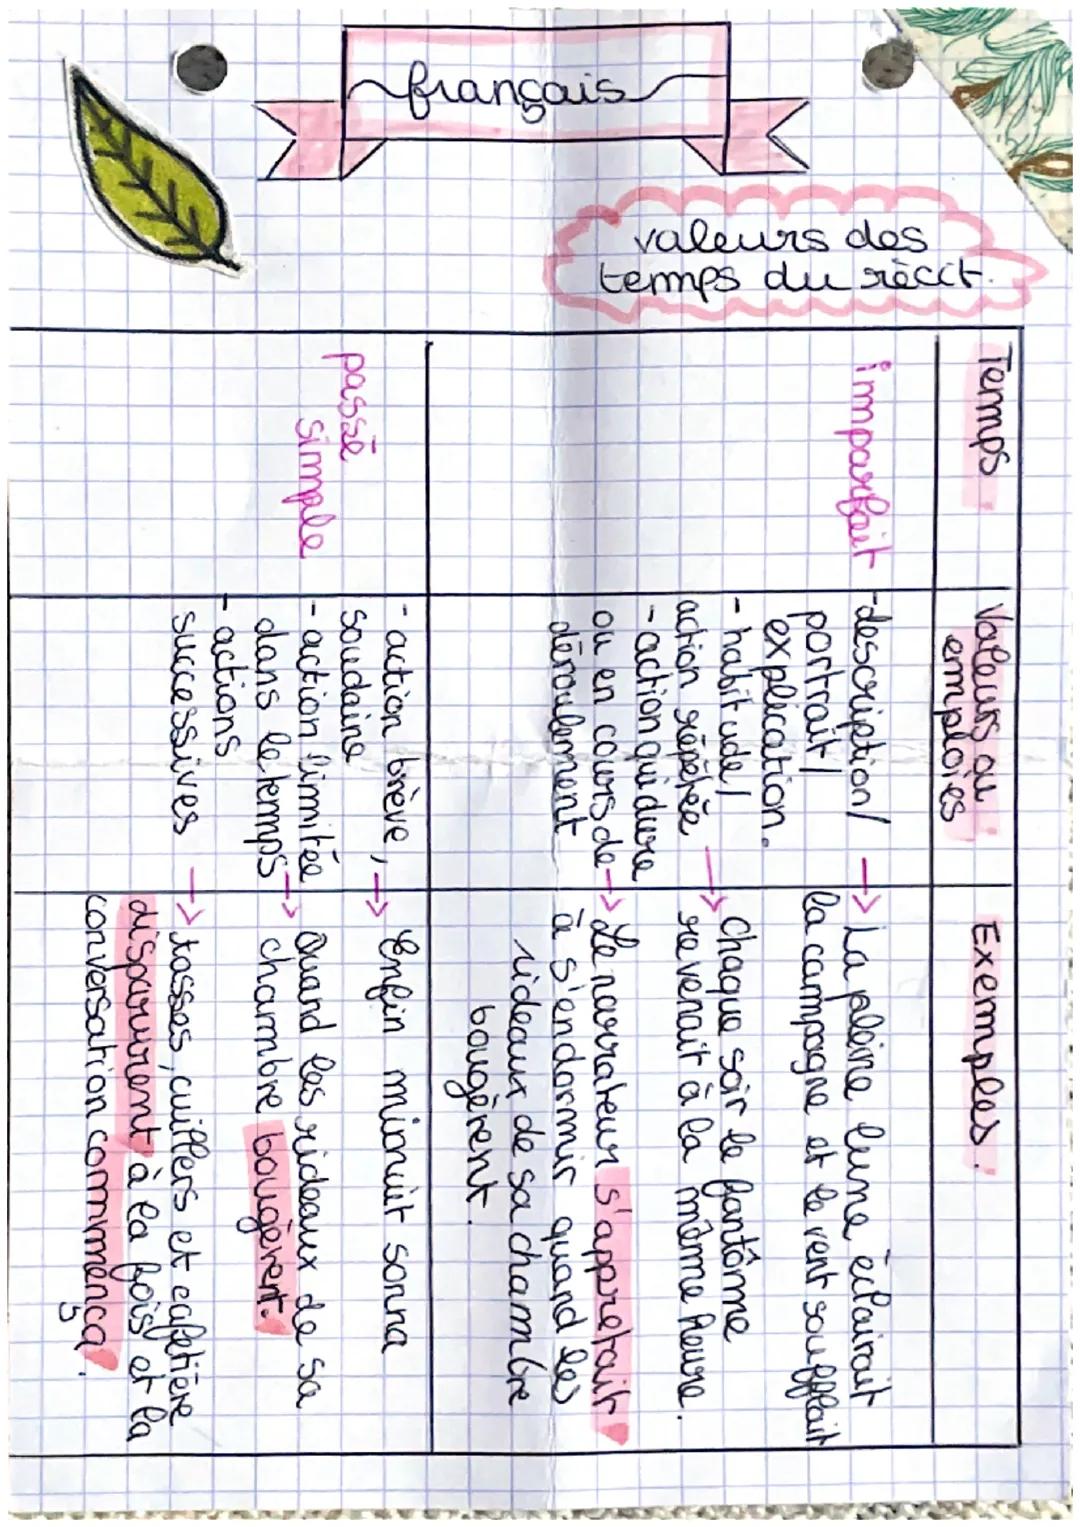 français
valeurs des
temps du récit.
Temps
Valeurs ou
emploies
Exemples.
imparfait
-description/
portrait/
explication.
- habitude/
action répétée
- action qui dure
ou en cours de
déroulement
→ La pleine lune éclairait
la campagne et le vent soufflait
→ Chaque soir le fantôme
revenait à la même heure.
→ Le narrateur s'appretait
à s'endormir quand les
rideaux de sa chambre
bougèrent.
passé
simple
- action brève,
soudaine
- action limitée
dans le temps
- actions
successives
→ Enfin minuit sonna
→ Quand les rideaux de sa
chambre bougèrent.
→ tasses, cuillers et cafetière
disparurent à la fois et la
conversation commença.